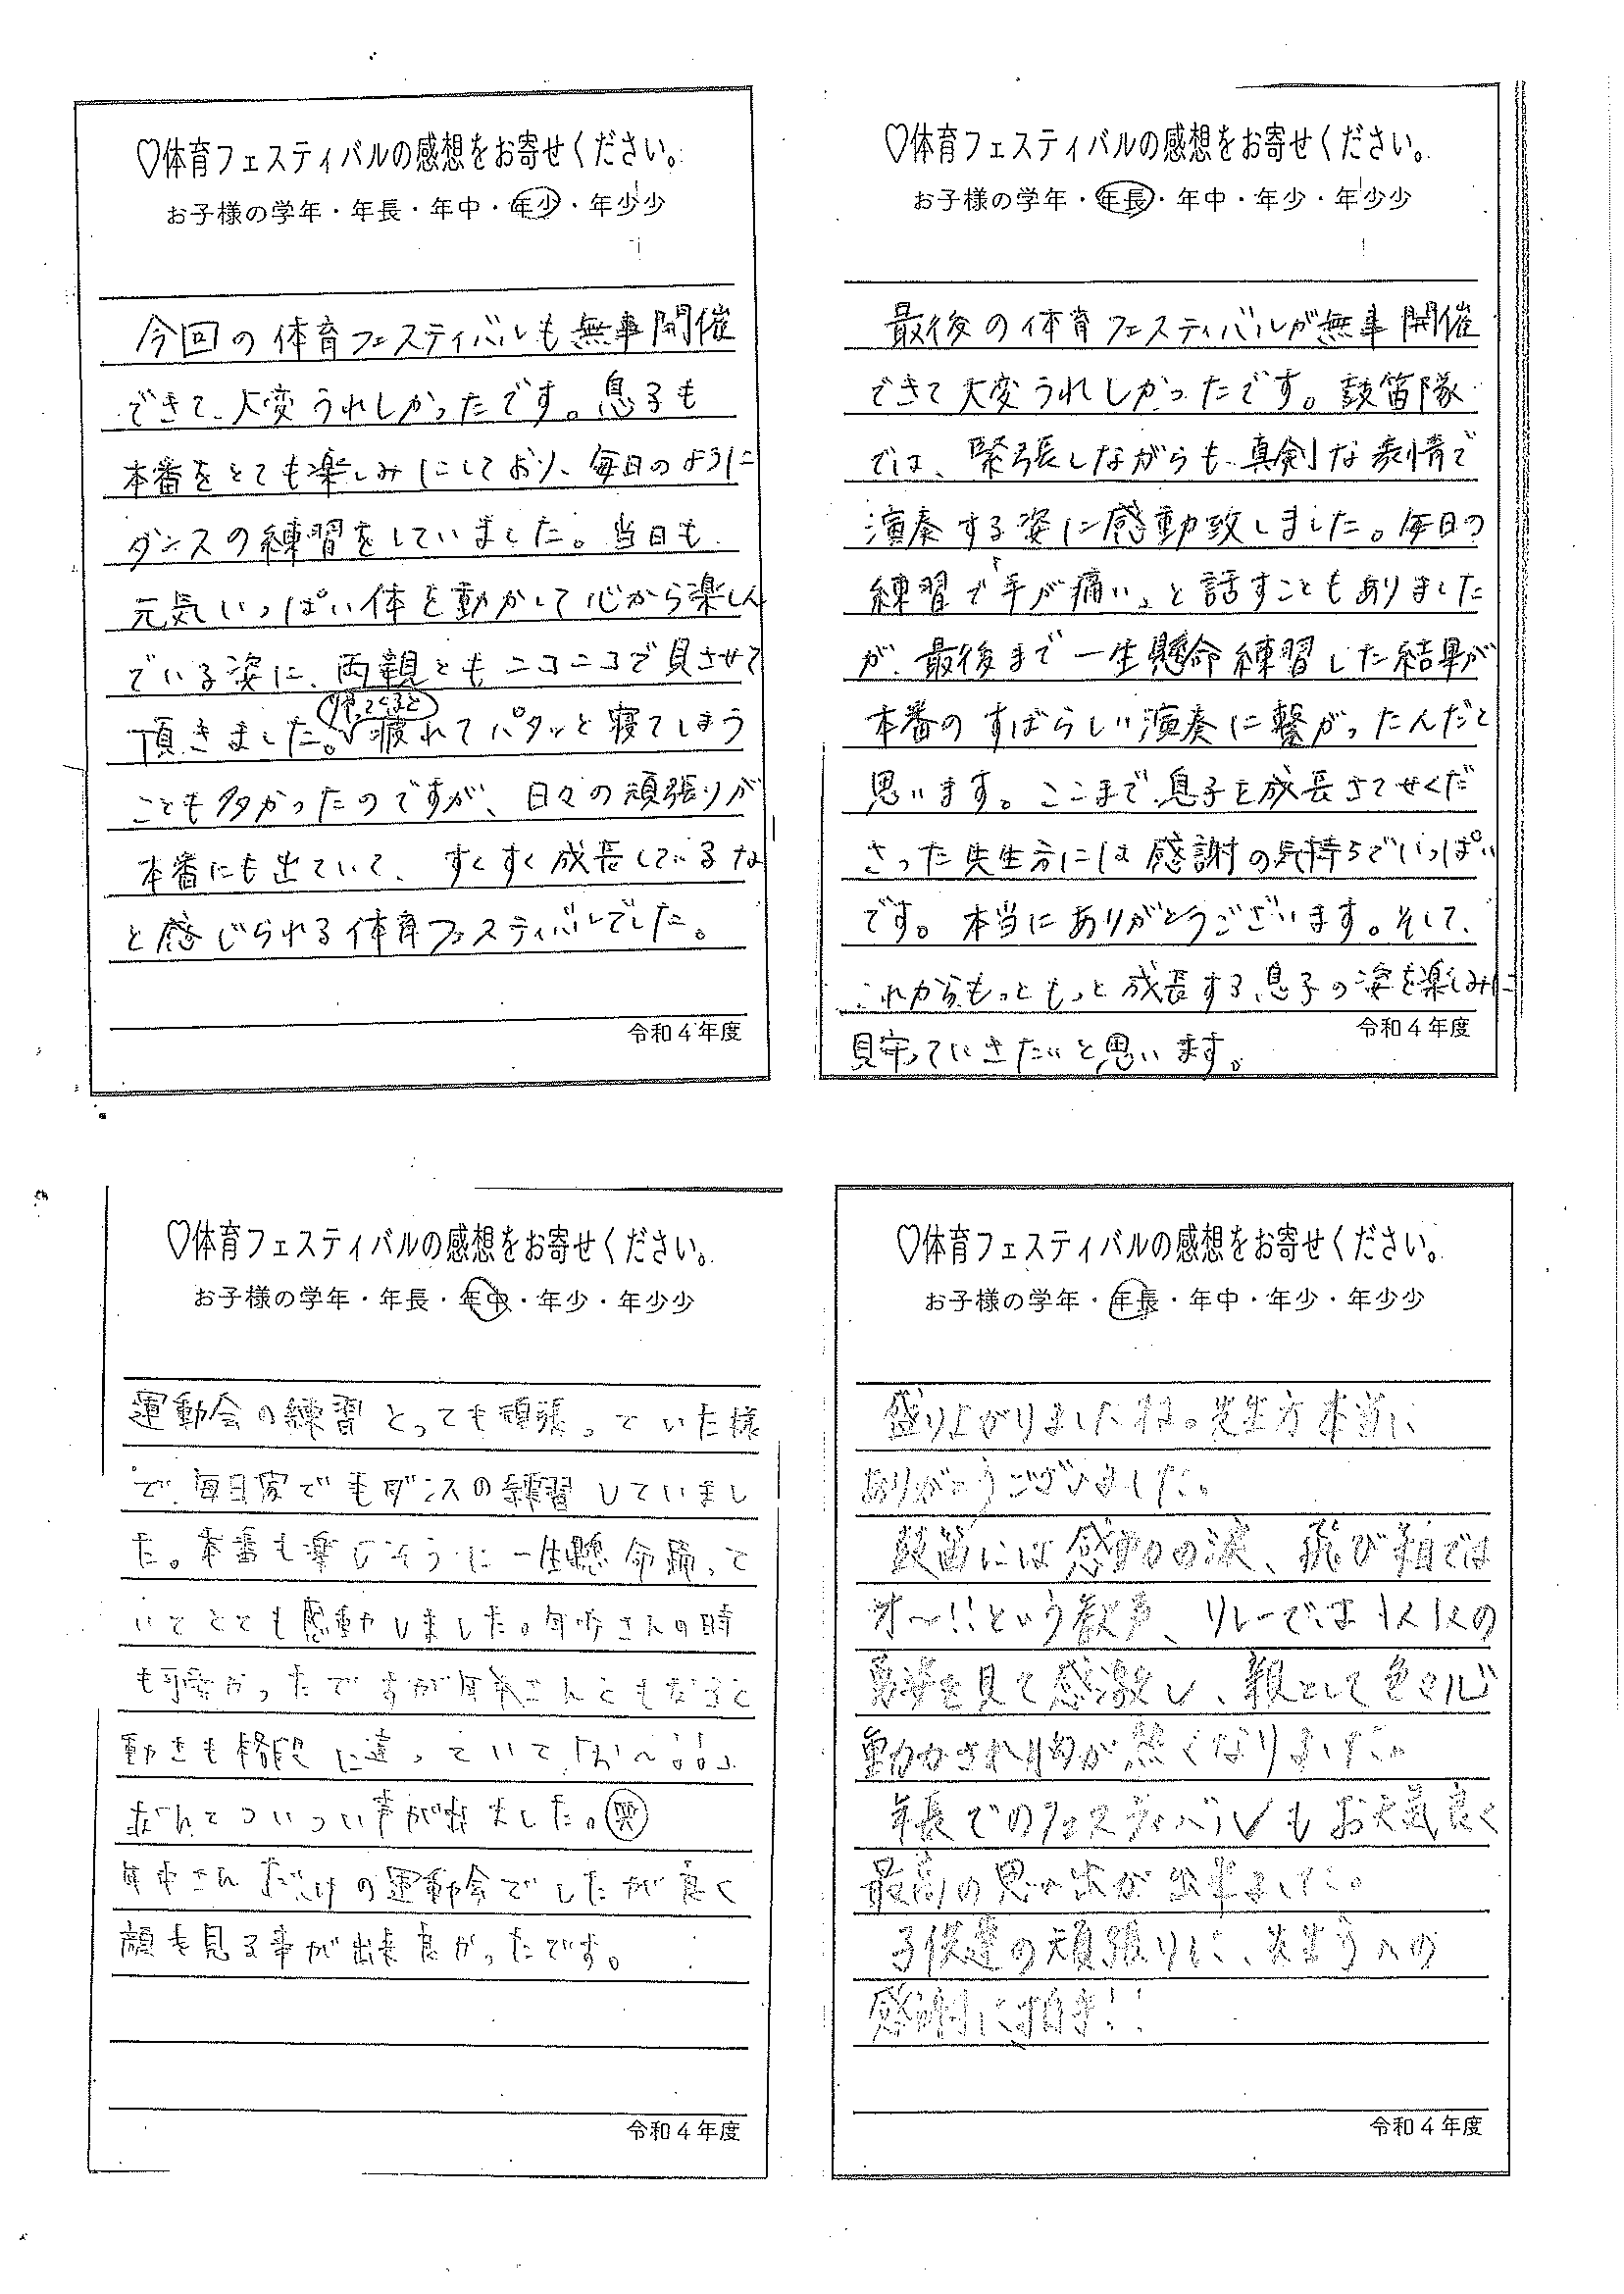 ♡体育フェスティバルの感想をお寄せください。
お子様の学年・年長・年中・年少・年少少
今回の体育フェスティバルも無事開催
できて、大変うれしかったです。息子も
本番をとても楽しみにしており、毎日のように
ダンスの練習をしていました。当日も
元気いっぱい体を動かして心から楽しん
でいる姿に、両親ともニコニコで見させて
頂きました。疲れてパタッと寝てしまう
ことも多かったのですが、日々の頑張りが
本番にも出ていて、すくすく成長しているな
と感じられる体育フェスティバルでした。
令和４年度
♡体育フェスティバルの感想をお寄せください。
お子様の学年・年長・年中・年少・年少少
最後の体育フェスティバルが無事開催
できて大変うれしかったです。鼓笛隊
では、緊張しながらも、真剣な表情で
演奏する姿に感動致しました。毎日の
練習で「手が痛い」と話すこともありました
が、最後まで一生懸命練習した結果が
本番のすばらしい演奏に繋がったんだと
思います。ここまで息子を成長させてくだ
さった先生方には感謝の気持ちでいっぱい
です。本当にありがとうございます。そして、
これからもっともっと成長する息子の姿を楽しみに
見守っていきたいと思います。
令和４年度
♡体育フェスティバルの感想をお寄せください。
お子様の学年・年長・年中・年少・年少少
運動会の練習とっても頑張っていた様
で、毎日家でもダンスの練習していまし
た。本番も楽しそうに一生懸命踊って
いてとても感動しました。年少さんの時
も可愛かったですが年中さんともなると
動きも格段に違っていて「お〜!!」
なんてついつい声が出ました。㊗
年中さんだけの運動会でしたが良く
顔を見る事が出来良かったです。
令和４年度
♡体育フェスティバルの感想をお寄せください。
お子様の学年・年長・年中・年少・年少少
盛り上がりましたね。先生方本当に
ありがとうございました。
鼓笛には感動の涙、飛び箱では
オ〜!!という歓声、リレーでは1人1人の
勇姿を見て感激し、親として色々心
動かされ胸が熱くなりました。
年長でのフェスティバルもお天気良く
最高の思い出が出来ました。
子供達の頑張りに、先生方への
感謝に拍手!!
令和４年度